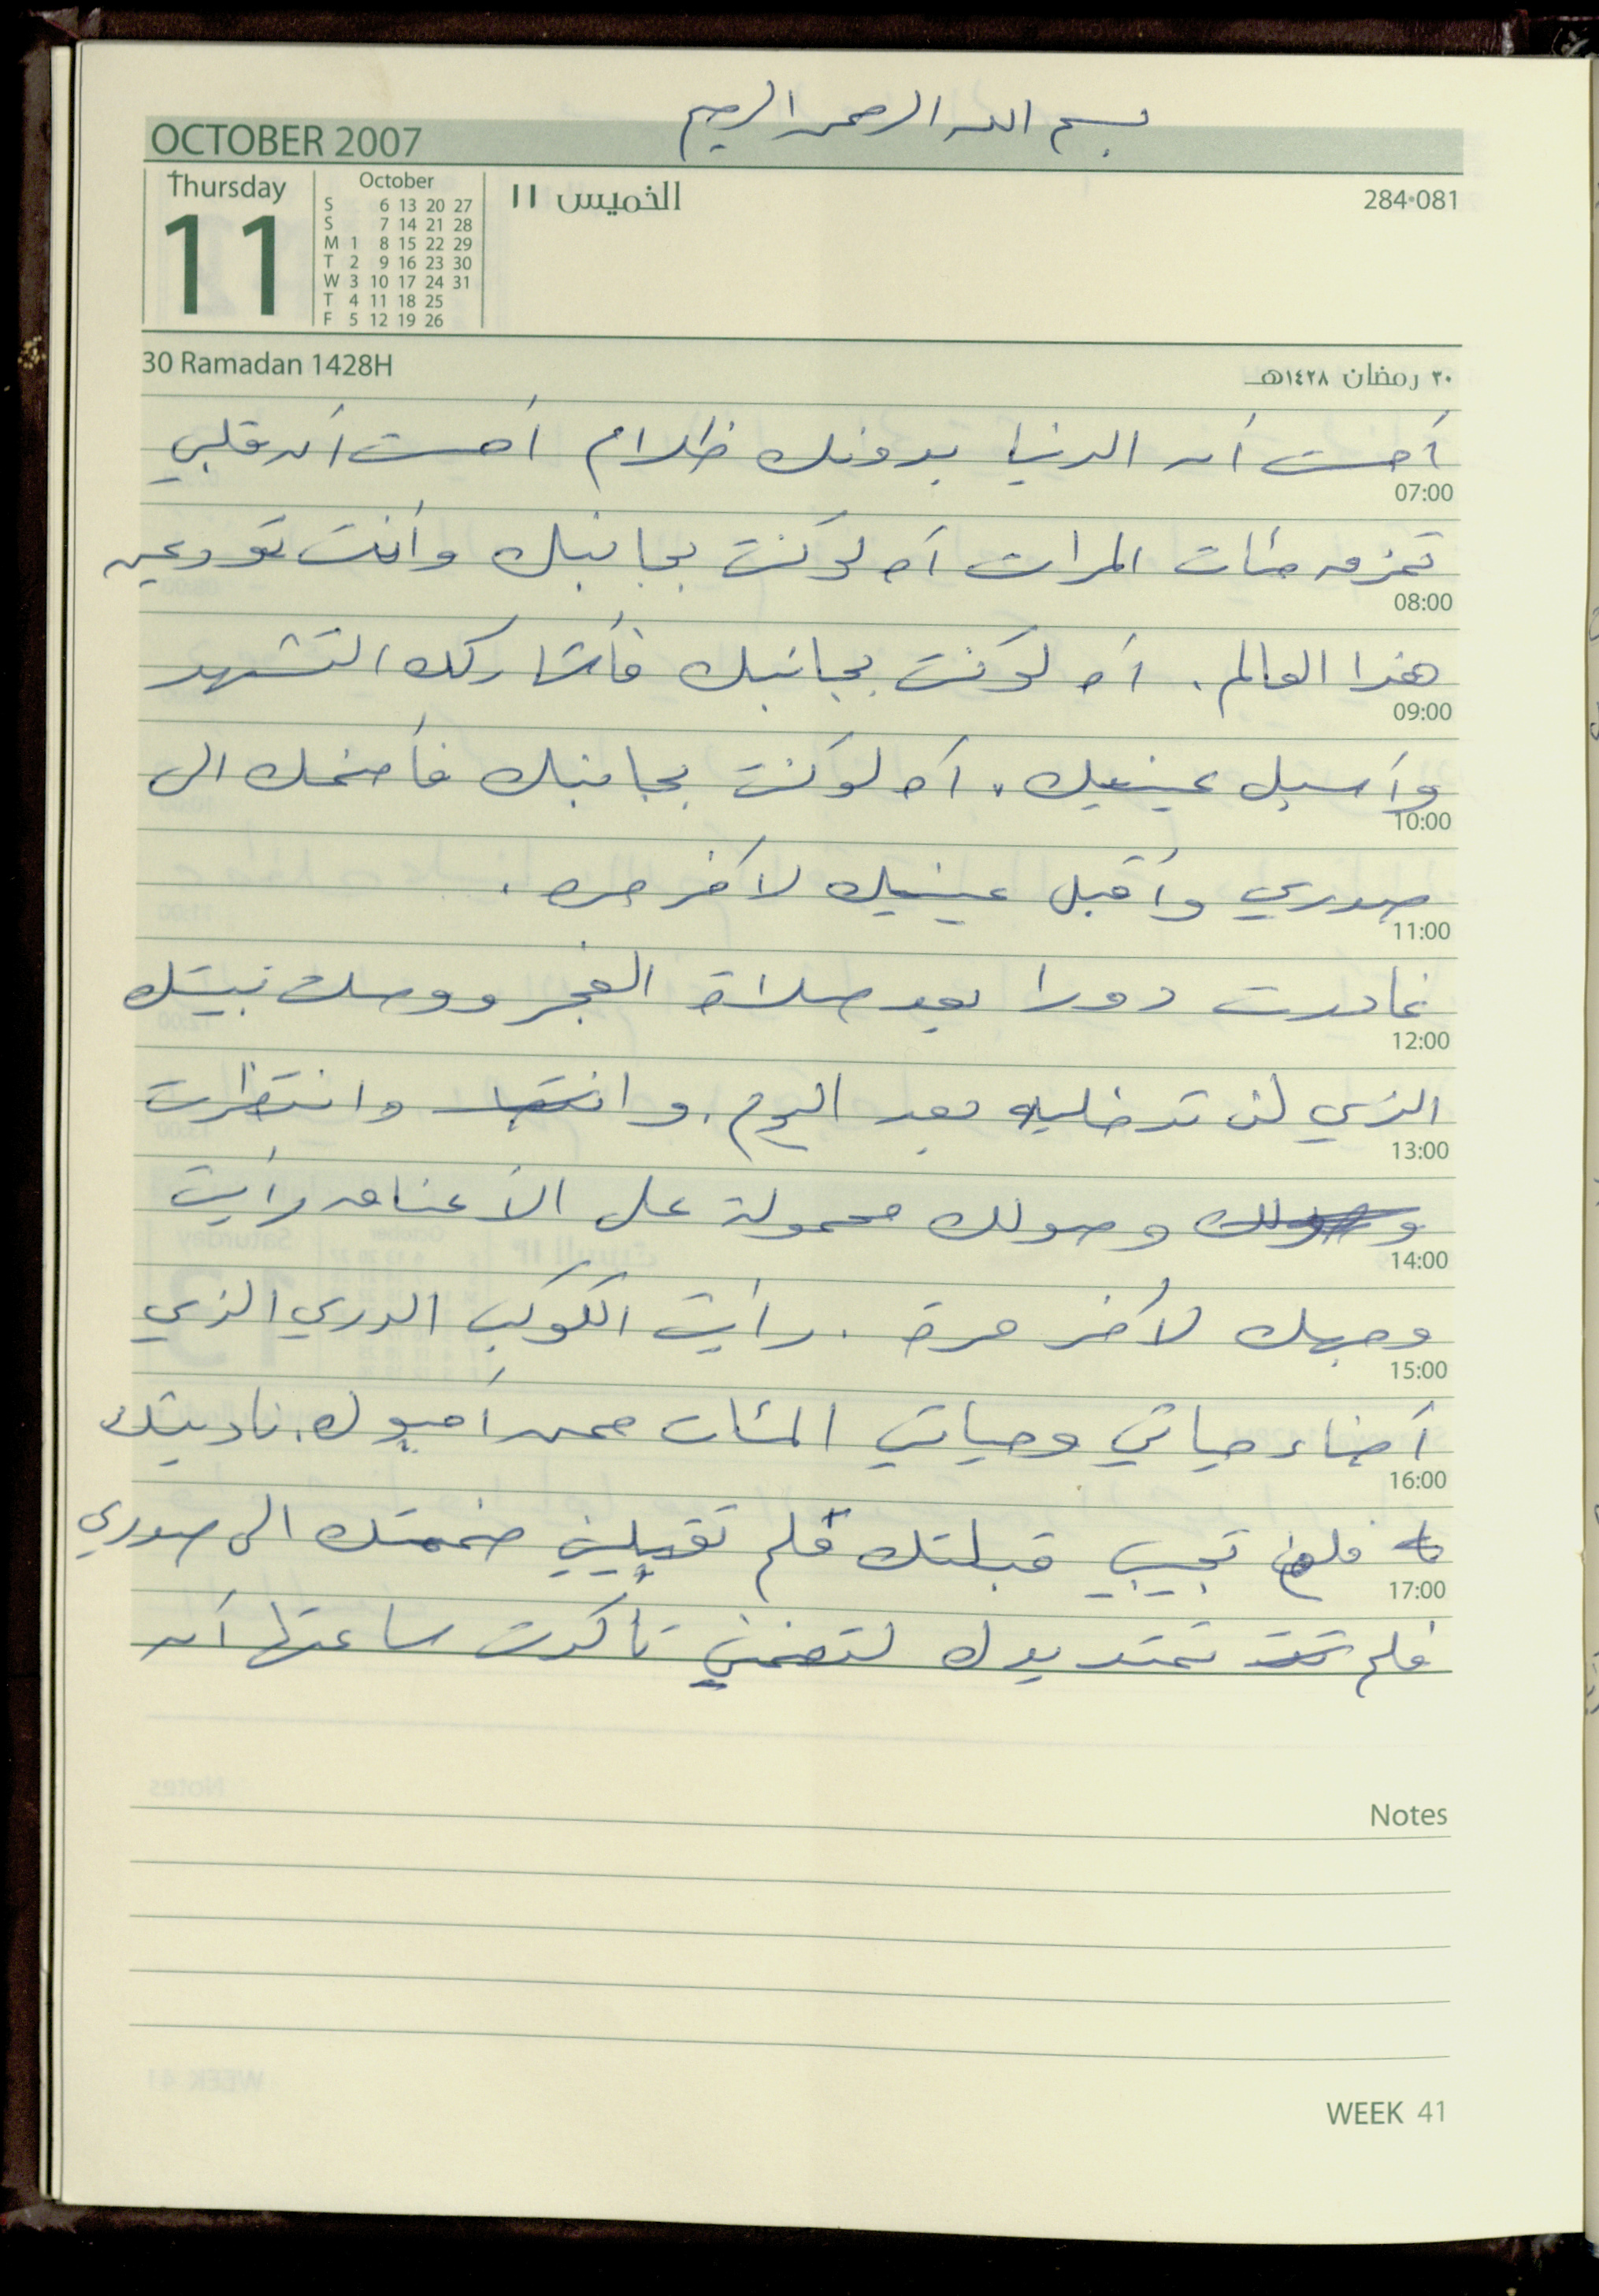 بسم الله الرحمن الرحيم
OCTOBER 2007
Thursday
11
October
S 6 13 20 27
S 7 14 21 28
M 1 8 15 22 29
T 2 9 16 23 30
W 3 10 17 24 31
T 4 11 18 25
F 5 12 19 26
الخميس ١١
284•081
30 Ramadan 1428H
٣٠ رمضان ١٤٢٨هـ
أحسست أن الدنيا بدونك ظلام أحسست أن قلبي
07:00
تمزق مئات المرات آه لو كنت بجانبك وأنت تودعين
08:00
هذا العالم. آه لو كنت بجانبك فأشاركك التشهد
09:00
وأسبل عينيك. آه لو كنت بجانبك فأضمك الى
10:00
صدري وأقبل عينيك لآخر مره.
11:00
غادرت دورا بعد صلاة الفجر ووصلت بيتك
12:00
الذي لن تدخليه بعد اليوم. وانتظرت
13:00
وصولك وصولك محمولة على الأعناق رأيت
14:00
وجهك لآخر مرة. رأيت الكوكب الدري الذي
15:00
أضاء حياتي وحياتي المئات ممن أحبوك. ناديتك
16:00
فلم تجيبي قبلتك فلم تقبليني ضممتك الى صدري
17:00
فلم تمتد يدك لتضمني تأكدت ساعتها أن
Notes
WEEK 41